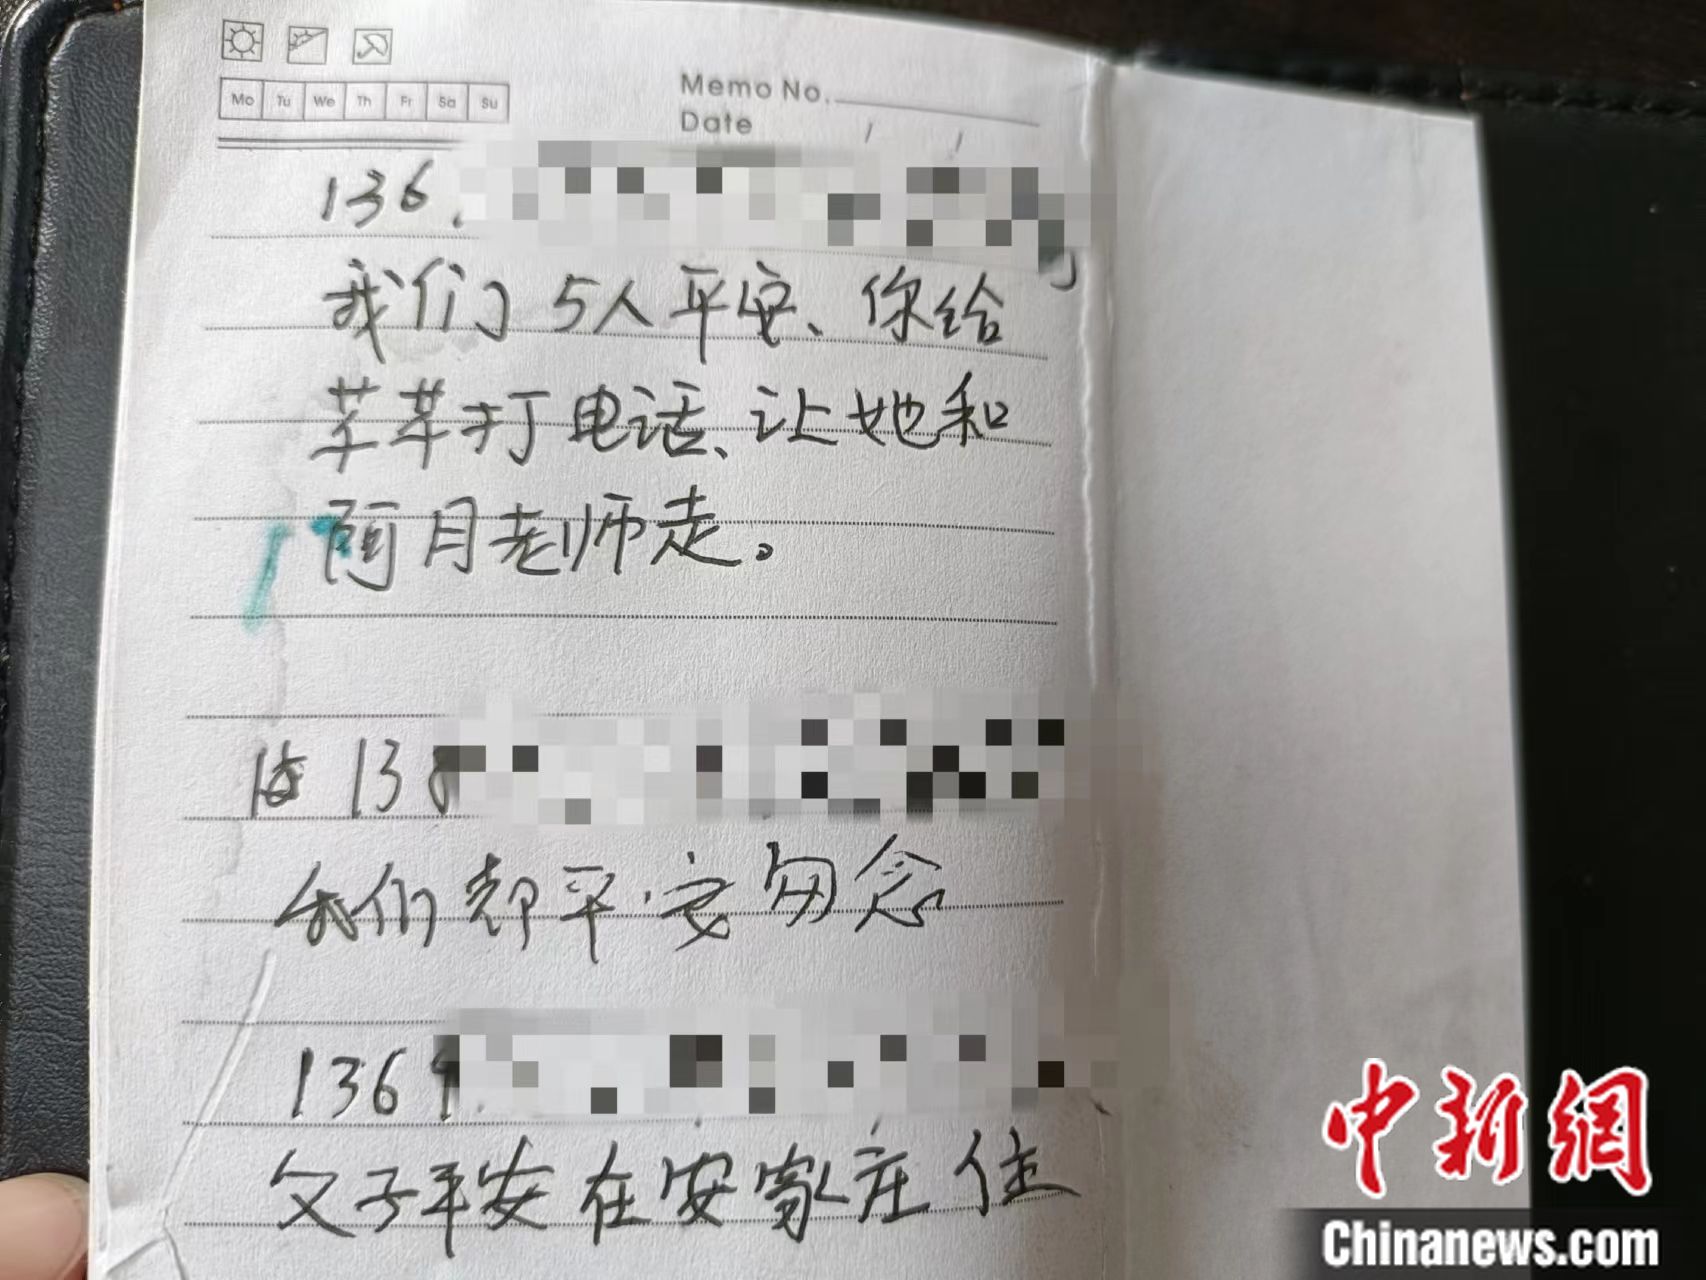 Mo Tu We Th Fr Sa Su
Memo No.
Date / /
136
我们5人平安、你给
苹苹打电话、让她和
阿月老师走。
138
我们都平安勿念
136
父子平安在安家庄住
中新網
Chinanews.com